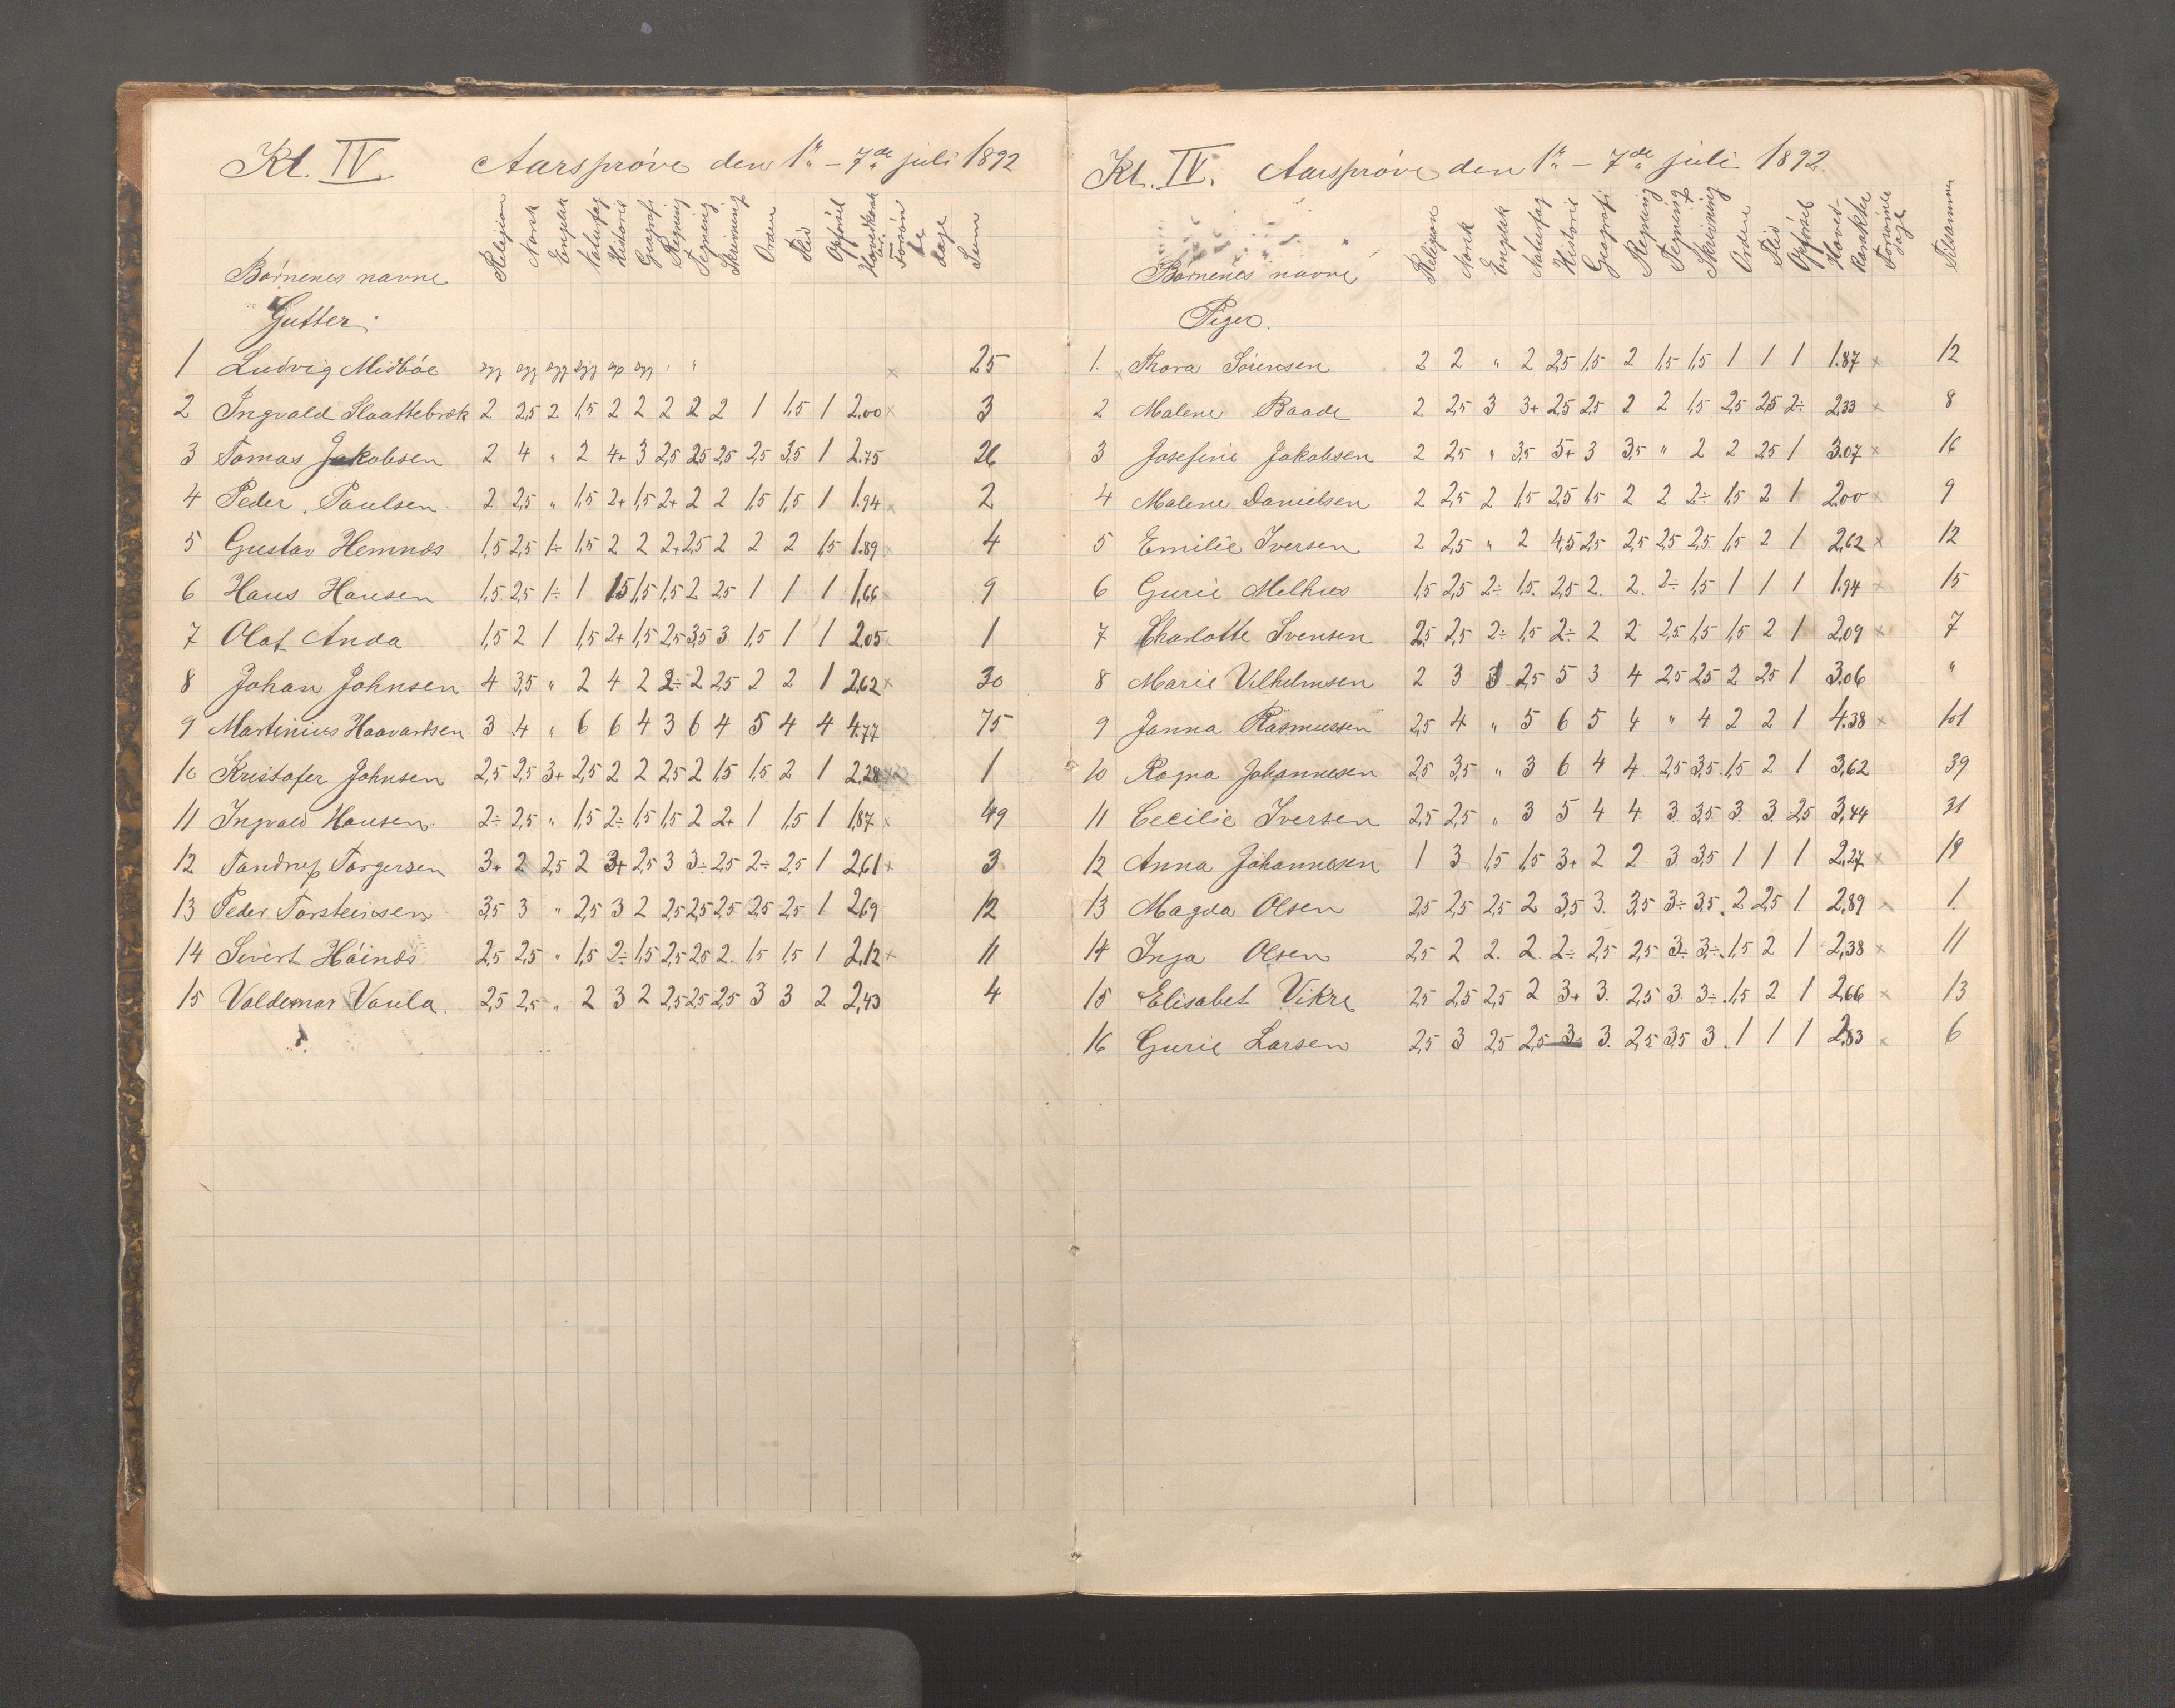 Kl. IV. Aarsprøve den 1" – 7de juli 1892
Børnenes navne Religion Norsk Engelsk Naturfag Historie Geografi Regning Tegning Skrivning Orden Flid Opførsel Hovedkarak Forsømte Dage Sum
Gutter.
1 Ludvig Midbøe syg syg syg syg syg syg " " x 25
2 Ingvald Slaattebræk 2 2,5 2 1,5 2 2 2 2 2 1 1,5 1 2.00 x 3
3 Tomas Jakobsen 2 4 " 2 4+ 3 2,5 2,5 2,5 2,5 3,5 1 2.75 26
4 Peder Paulsen 2 2,5 " 1,5 2+ 1,5 2+ 2 2 1,5 1,5 1 1.94 x 2
5 Gustav Hemnes 1,5 2,5 1÷ 1,5 2 2 2+ 2,5 2 2 2 1,5 1.89 x 4
6 Hans Hansen 1,5 2,5 1÷ 1 1,5 1,5 1,5 2 2,5 1 1 1 1,66 x 9
7 Olaf Anda 1,5 2 1 1,5 2+ 1,5 2,5 3,5 3 1,5 1 1 2.05 x 1
8 Johan Johnsen 4 3,5 " 2 4 2 2÷ 2 2,5 2 2 1 2,62 x 30
9 Martinius Haavardsen 3 4 " 6 6 4 3 6 4 5 4 4 4.77 75
10 Kristofer Johnsen 2,5 2,5 3+ 2,5 2 2 2,5 2 1,5 1,5 2 1 2,28 x 1
11 Ingvald Hansen 2÷ 2,5 " 1,5 2÷ 1,5 1,5 2 2+ 1 1,5 1 1,87 x 49
12 Tandrup Torgersen 3+ 2 2,5 2 3+ 2,5 3 3÷ 2,5 2÷ 2,5 1 2,61 x 3
13 Peder Torsteinsen 3,5 3 " 2,5 3 2 2,5 2,5 2,5 2,5 2,5 1 2,69 12
14 Sivert Høines 2,5 2,5 " 1,5 2÷ 1,5 2,5 2,5 2. 1,5 1,5 1 2,12 x 11
15 Valdemar Vaula. 2,5 2,5 " 2 3 2 2,5 2,5 2,5 3 3 2 2,43 4
Kl. IV. Aarsprøve den 1" – 7de juli 1892.
Børnenes navne Religion Norsk Engelsk Naturfag Historie Geografi Regning Tegning Skrivning Orden Flid Opførsel Hoved-karakter Forsømte dage Tilsammen
Piger.
1. Thora Sørensen 2 2 " 2 2,5 1,5 2 1,5 1,5 1 1 1 1.87 x 12
2 Malene Baade 2 2,5 3 3+ 2,5 2,5 2 2 1,5 2,5 2,5 2÷ 2,33 x 8
3 Josefine Jakobsen 2 2,5 " 3,5 5+ 3 3,5 " 2 2 2,5 1 3.07 x 16
4 Malene Danielsen 2 2,5 2 1,5 2,5 1,5 2 2 2÷ 1,5 2 1 2.00 x 9
5 Emilie Iversen 2 2,5 " 2 4,5 2,5 2,5 2,5 2,5 1,5 2 1 2,62 x 12
6 Gurie Melhus 1,5 2,5 2÷ 1,5. 2,5 2. 2. 2÷ 1,5 1 1 1 1.94 x 15
7 Charlotte Svensen 2,5 2,5 2÷ 1,5 2÷ 2 2 2,5 1,5 1,5 2 1 2,09 x 7
8 Marie Vilhelmsen 2 3 3 2,5 5 3 4 2,5 2,5 2 2,5 1 3.06 "
9 Janna Rasmussen 2,5 4 " 5 6 5 4 " 4 2 2 1 4.38 x 101
10 Ragna Johannesen 2,5 3,5 " 3 6 4 4. 2,5 3,5 1,5 2 1 3,62 39
11 Cecilie Iversen 2,5 2,5 " 3 5 4 4. 3 3,5 3. 3 2,5 3,44 31
12 Anna Johannesen 1 3 1,5 1,5 3+ 2 2 3 3,5 1 1 1 2,27 x 19
13 Magda Olsen 2,5 2,5 2,5 2 3,5 3. 3,5 3÷ 3,5. 2 2,5 1 2,89 x 1.
14 Inga Olsen 2,5 2 2. 2. 2÷ 2,5 2,5 3÷ 3÷ 1,5 2 1 2,38 x 11
15 Elisabet Vikre 2,5 2,5 2,5 2 3+ 3. 2,5 3. 3÷ 1,5 2 1 2,66 x 13
16 Gurie Larsen 2,5 3 2,5 2,5 3÷ 3. 2,5 3,5 3 1 1 1 2,83 x 6